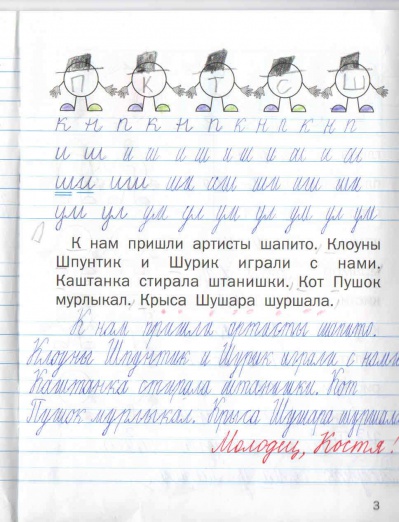 П К Т С Ш
к н п к н п к н п к н п к н п
и ш и ш и ш и ш и ш и ш
ши иш ши иш ши иш ши
ум ул ум ул ум ул ум ул ум
К нам пришли артисты шапито. Клоуны
Шпунтик и Шурик играли с нами.
Каштанка стирала штанишки. Кот Пушок
мурлыкал. Крыса Шушара шуршала.
К нам пришли артисты шапито.
Клоуны Шпунтик и Шурик играли с нами
Каштанка стирала штанишки. Кот
Пушок мурлыкал. Крыса Шушара шуршала.
Молодец, Костя!
3